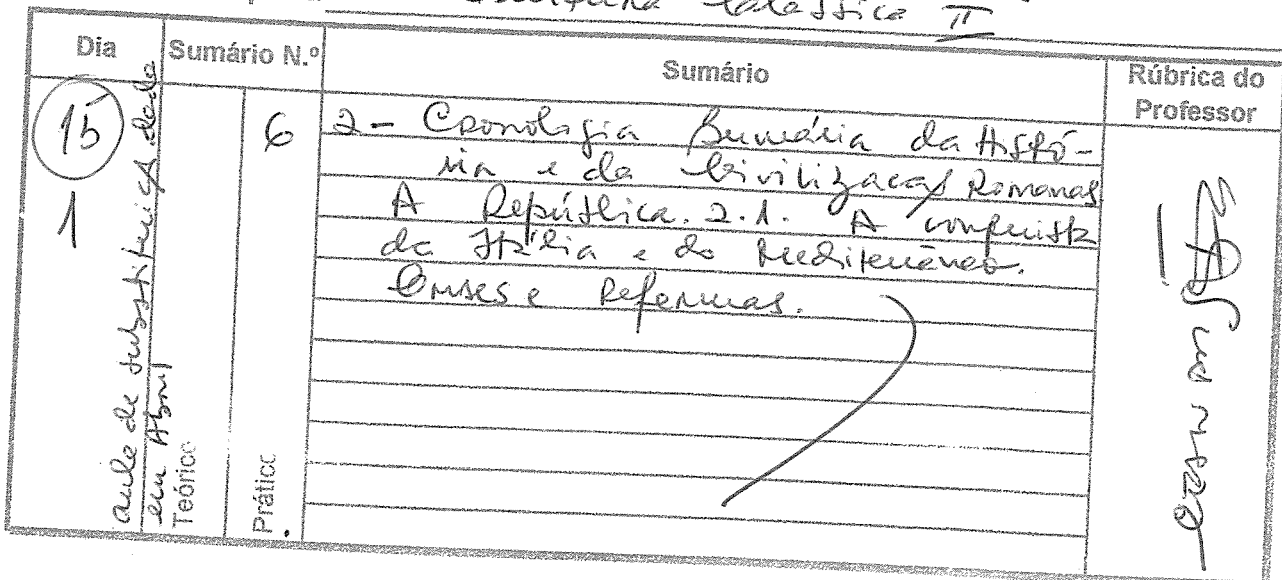 Clássica II
Dia
Sumário N.º
Sumário
Rúbrica do
Professor
15
1
aula de substituição dada
em Abril
Teórico
Prático
6
2 - Cronologia Sumária da Histó-
ria e da Civilização Romanas
A República. 2.1. A conquista
da Itália e do Mediterrâneo.
Crises e Reformas.